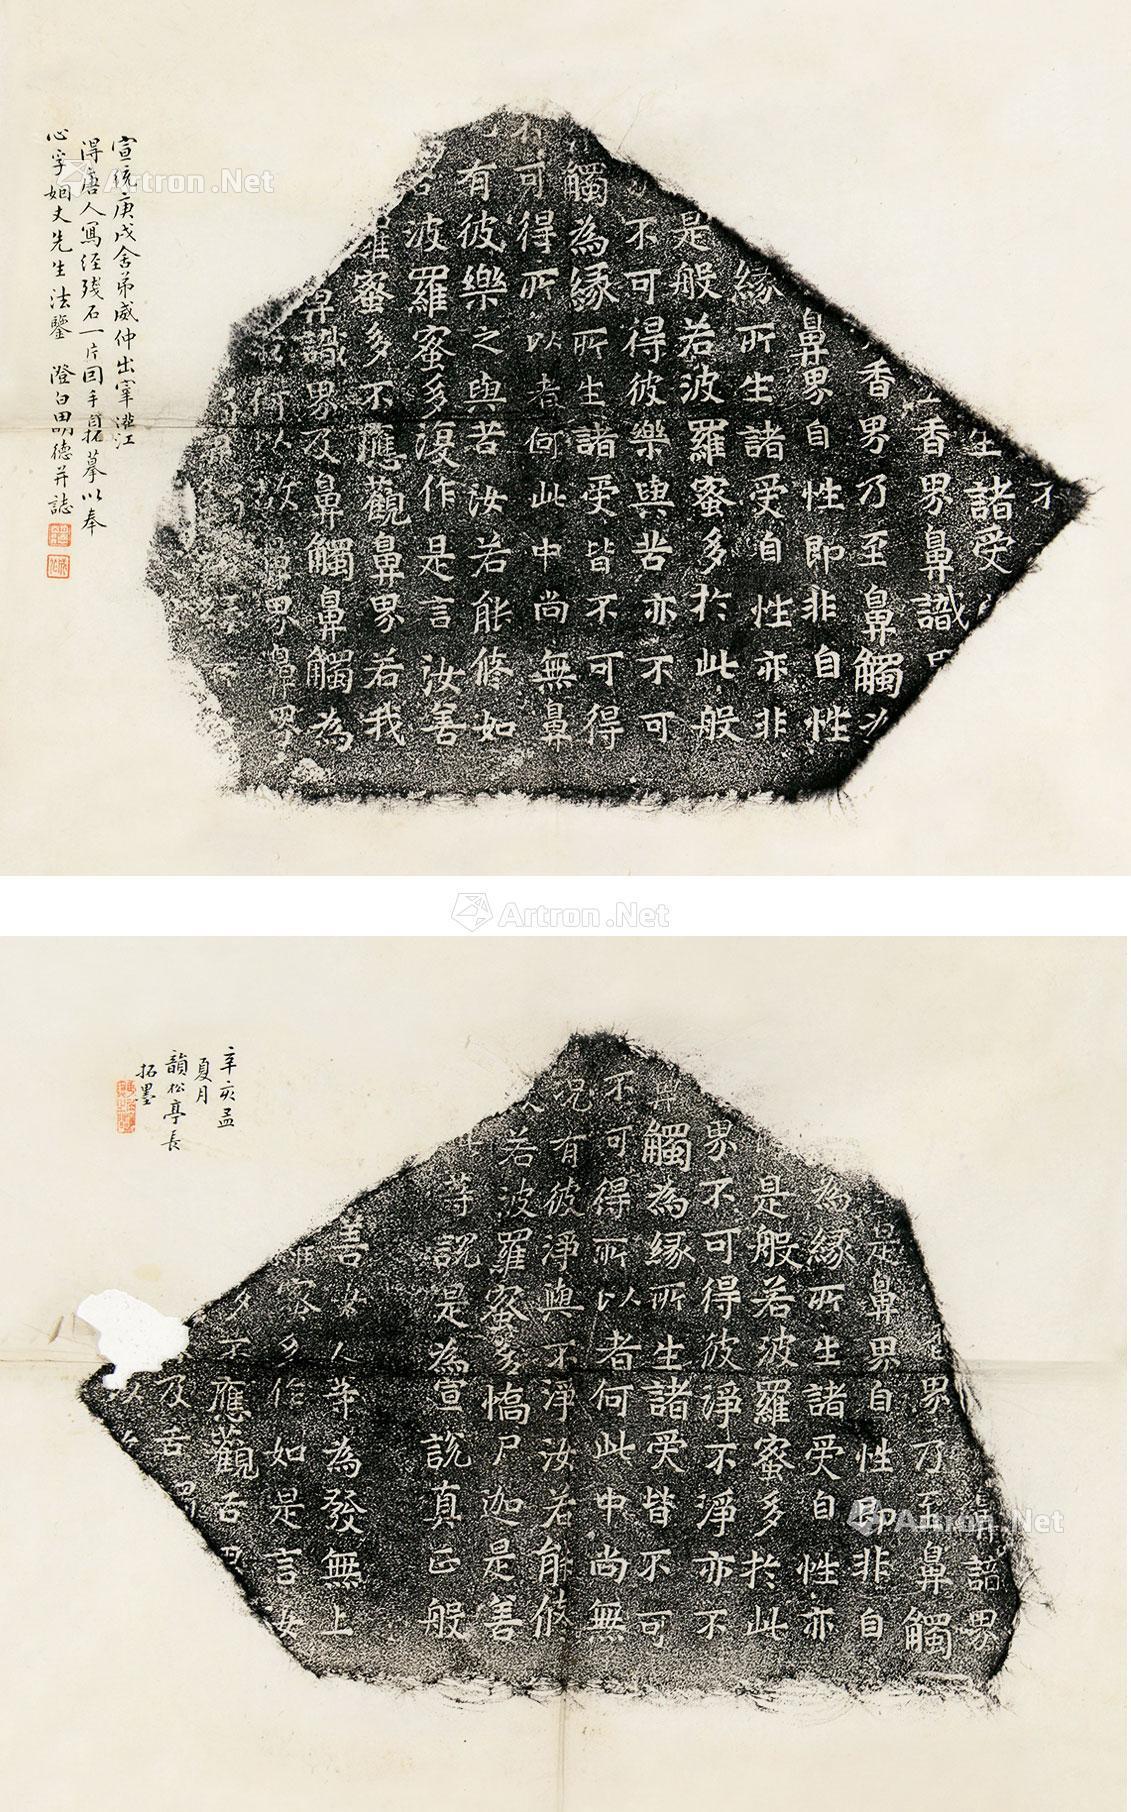 生諸受
香界鼻識
香界乃至鼻觸
鼻界自性即非自性
緣所生諸受自性亦非
是般若波羅蜜多於此般
不可得彼樂與苦亦不可
觸為緣所生諸受皆不可得
可得所以者何此中尚無鼻
有彼樂之與苦汝若能修如
波羅蜜多復作是言汝善
蜜多不應觀鼻界若我
鼻識界及鼻觸鼻觸為
界鼻界
宣統庚戌舍弟威仲出宰灌江
得唐人寫經殘石一片回手自拓摹以奉
心孚姻丈先生法鑒 澄白田明德并誌
Artron.Net
Artron.Net
諳界
界乃至鼻觸
是鼻界自性即非自
為緣所生諸受自性亦
是般若波羅蜜多於此
界不可得彼淨不淨亦不
與觸為緣所生諸受皆不可
不可得所以者何此中尚無
況有彼淨與不淨汝若能修
若波羅蜜多憍尸迦是善
等說是為宣說真正般
善女人等為發無上
蜜多作如是言汝
不應觀舌界
及舌界
辛亥孟
夏月
韻松亭長
拓墨
Artron.Net